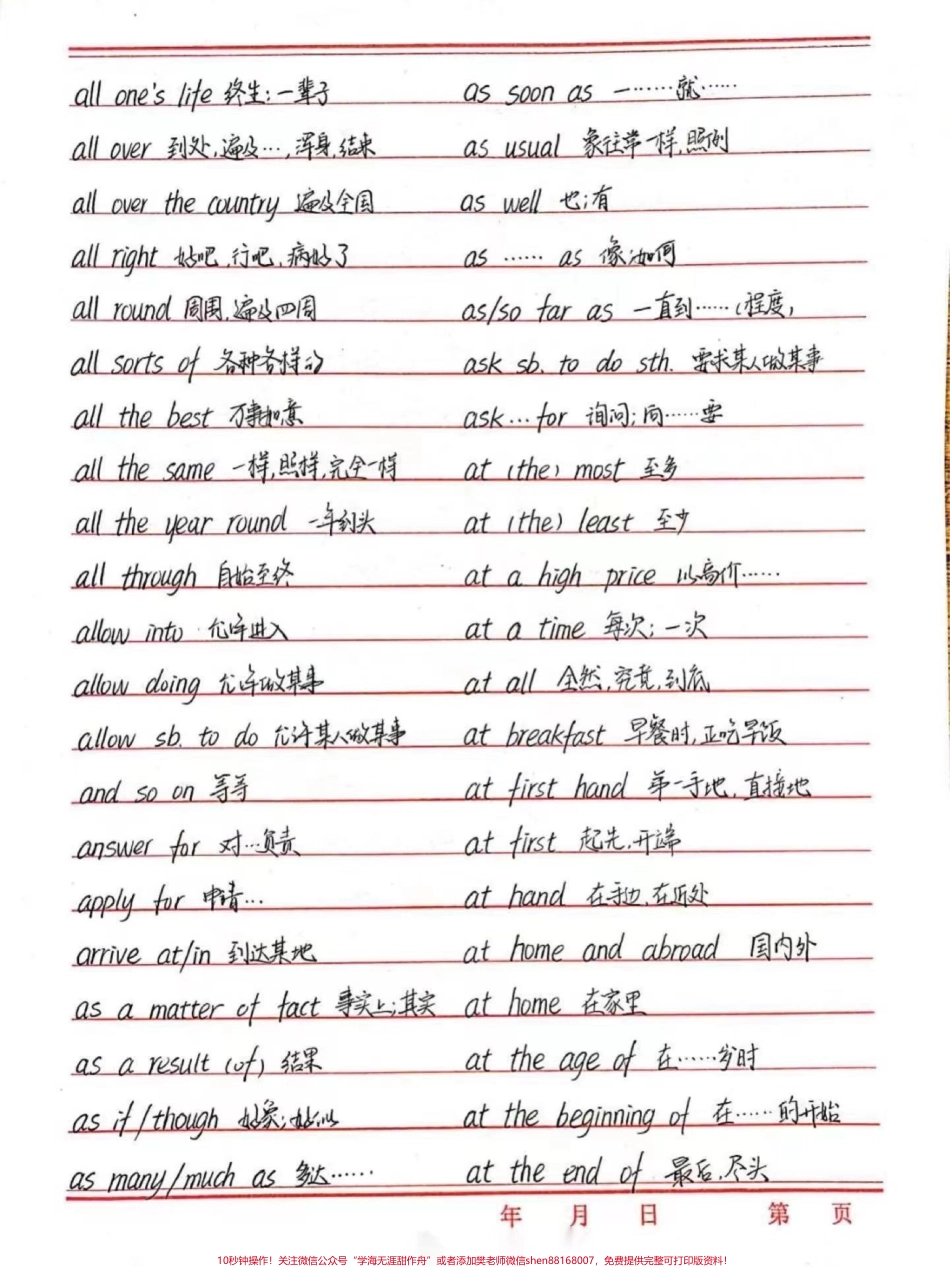 all one's life 终生;一辈子
all over 到处,遍及…,浑身,结束
all over the country 遍及全国
all right 好吧,行吧,病好了
all round 周围,遍及四周
all sorts of 各种各样的
all the best 万事如意
all the same 一样,照样,完全一样
all the year round 一年到头
all through 自始至终
allow into 允许进入
allow doing 允许做某事
allow sb. to do 允许某人做某事
and so on 等等
answer for 对…负责
apply for 申请…
arrive at/in 到达某地
as a matter of fact 事实上;其实
as a result (of) 结果
as if/though 好象;好似
as many/much as 多达……
as soon as 一……就……
as usual 象往常一样,照例
as well 也;有
as …… as 像;如何
as/so far as 一直到……(程度)
ask sb. to do sth. 要求某人做某事
ask…for 询问;向……要
at (the) most 至多
at (the) least 至少
at a high price 以高价……
at a time 每次;一次
at all 全然,究竟,到底
at breakfast 早餐时,正吃早饭
at first hand 第一手地,直接地
at first 起先,开端
at hand 在手边,在近处
at home and abroad 国内外
at home 在家里
at the age of 在……岁时
at the beginning of 在……的开始
at the end of 最后,尽头
年 月 日 第 页
10秒钟操作!关注微信公众号“学海无涯甜作舟”或者添加樊老师微信shen88168007,免费提供完整可打印版资料!